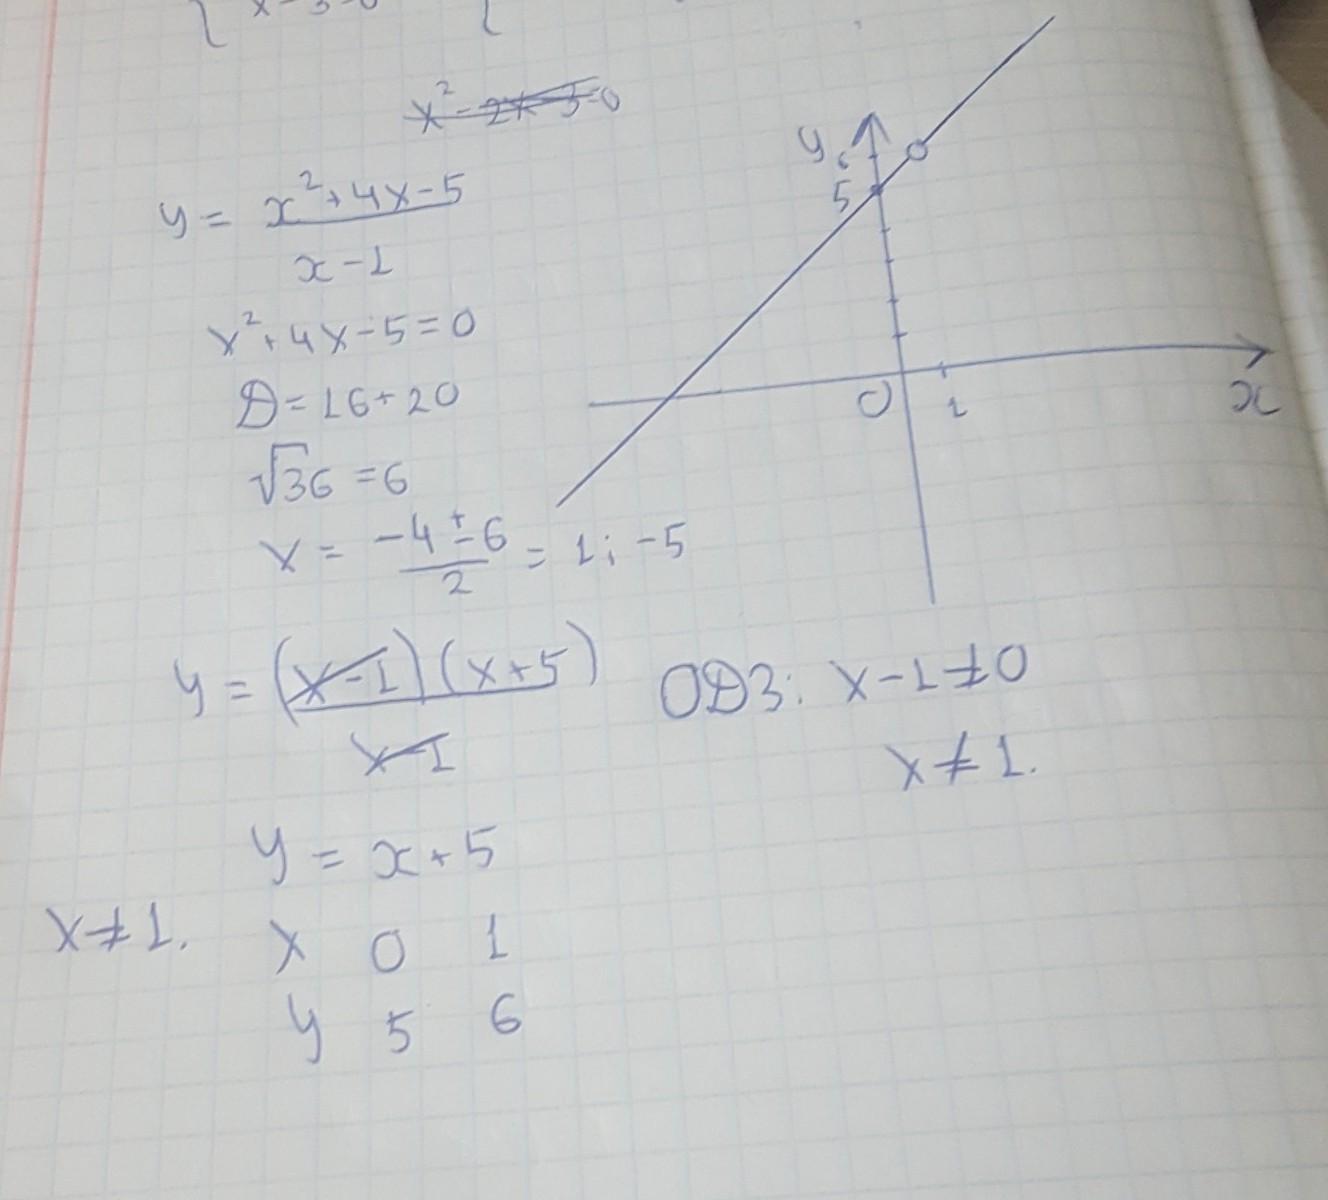 x² - 2x - 3 = 0
y = (x² + 4x - 5) / (x - 1)
x² + 4x - 5 = 0
D = 16 + 20
√36 = 6
x = (-4 ± 6) / 2 = 1; -5
y = (x - 1)(x + 5) / (x - 1)
ОДЗ: x - 1 ≠ 0
x ≠ 1.
y = x + 5
x ≠ 1.
x 0 1
y 5 6
y
6
5
0 1 x